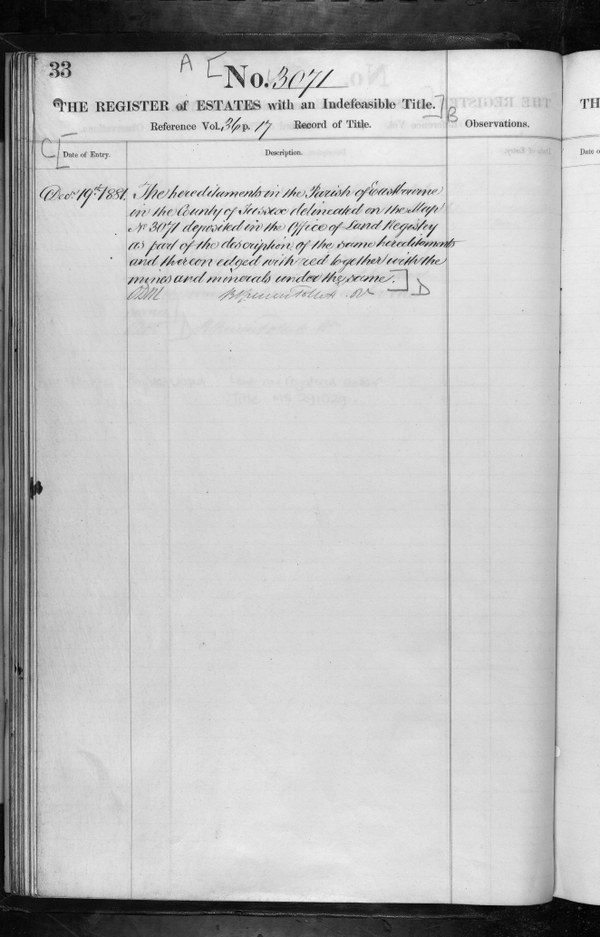 33
A [
No. 3071
THE REGISTER of ESTATES with an Indefeasible Title. ] B
Reference Vol. 36 p. 17 Record of Title.
Observations.
C [
Date of Entry.
Description.
Decr. 19th 1881.
The hereditaments in the Parish of Eastbourne
in the County of Sussex delineated on the Map
No 3071 deposited in the Office of Land Registry
as part of the description of the same hereditaments
and thereon edged with red together with the
mines and minerals under the same. ] D
TH
Date o